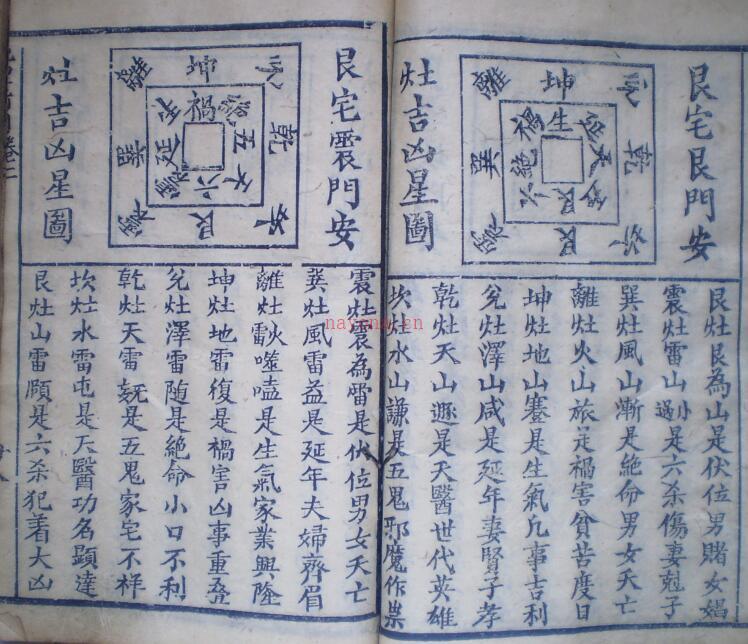 艮宅艮門安
灶吉凶星圖
離 坤 兌
巽 乾
震 艮 坎
禍 生 延
絕 天
六 艮 五
艮灶艮為山是伏位男賭女娼
震灶雷山小過是六杀傷妻尅子
巽灶風山漸是絕命男女夭亡
離灶火山旅是禍害貧苦度日
坤灶地山蹇是生氣凡事吉利
兌灶澤山咸是延年妻賢子孝
乾灶天山遯是天醫世代英雄
坎灶水山謙是五鬼邪魔作祟
艮宅震門安
灶吉凶星圖
離 坤 兌
巽 乾
震 艮 坎
生 禍 絕
延 五
六 天
震灶震為雷是伏位男女夭亡
巽灶風雷益是延年夫婦齊眉
離灶火雷噬嗑是生氣家業興隆
坤灶地雷復是禍害凶事重叠
兌灶澤雷随是絕命小口不利
乾灶天雷
是五鬼家宅不祥
坎灶水雷屯是天醫功名顯達
艮灶山雷頤是六杀犯着大凶
卷二
nayona.cn